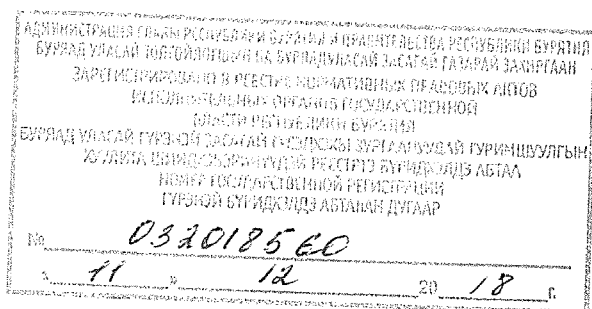 АДМИНИСТРАЦИЯ ГЛАВЫ РЕСПУБЛИКИ БУРЯТИЯ И ПРАВИТЕЛЬСТВА РЕСПУБЛИКИ БУРЯТИЯ
БУРЯАД УЛАСАЙ ЗАСАГАЙ ГАЗАРАЙ ЗАХИРГААН
ЗАРЕГИСТРИРОВАНО В РЕЕСТРЕ НОРМАТИВНЫХ ПРАВОВЫХ АКТОВ
ИСПОЛНИТЕЛЬНЫХ ОРГАНОВ ГОСУДАРСТВЕННОЙ
ВЛАСТИ РЕСПУБЛИКИ БУРЯТИЯ
БУРЯАД УЛАСАЙ ГҮРЭНЭЙ ЗАСАГАЙ ГҮРИМШУУЛГЫН
РЕЕСТРТЭ БҮРИДХЭЛДЭ АБТАА
НОМЕР ГОСУДАРСТВЕННОЙ РЕГИСТРАЦИИ
ГҮРЭНЭЙ БҮРИДХЭЛДЭ АБТАҺАН ДУГААР
№ 032018560
« 11 » 12 20 18 г.